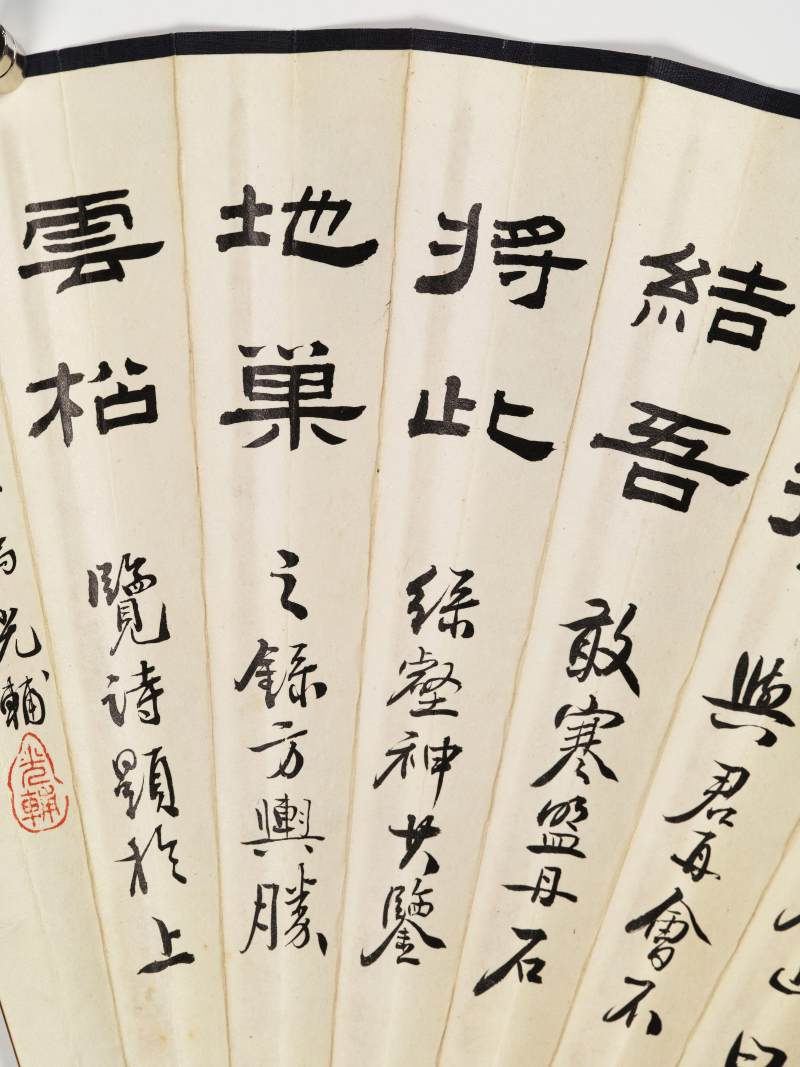 與君再會不
結吾
敢寒盟丹石
將此
緑壑神共鑒
地巢
之錄方輿勝
雲松
覽詩題於上
光輔
光輔